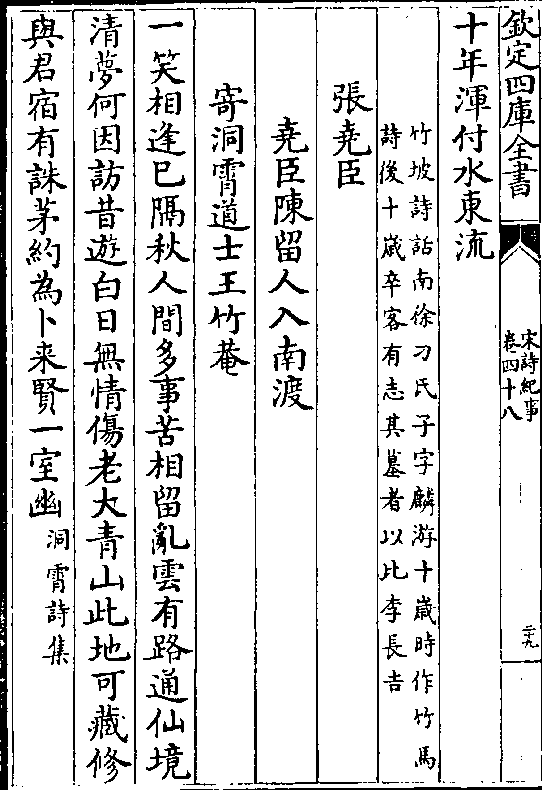 欽定四庫全書
宋詩紀事
卷四十八
二十九
十年渾付水東流
竹坡詩話南徐刁氏子字麟游十歲時作竹馬
詩後十歲卒客有志其墓者以比李長吉
張堯臣
堯臣陳留人入南渡
寄洞霄道士王竹菴
一笑相逢已隔秋人間多事苦相留亂雲有路通仙境
清夢何因訪昔遊白日無情傷老大青山此地可藏修
與君宿有誅茅約為卜来賢一室幽洞霄詩集